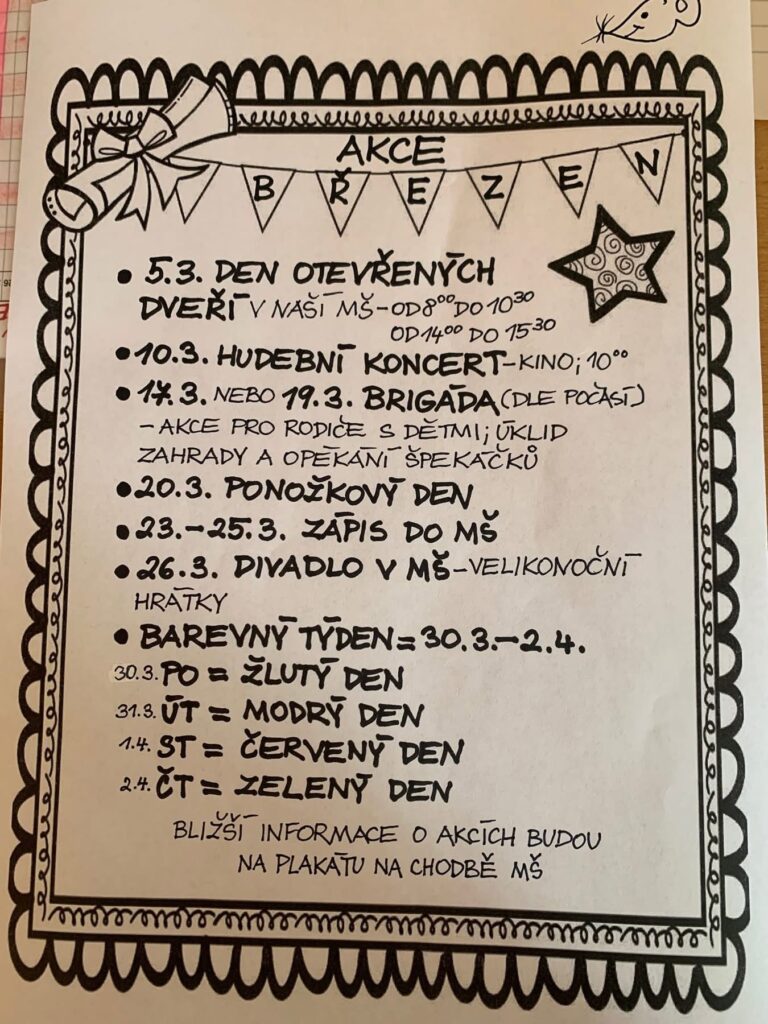 AKCE
BŘEZEN
• 5.3. DEN OTEVŘENÝCH
DVEŘÍ V NAŠÍ MŠ-OD 8⁰⁰ DO 10³⁰
OD 14⁰⁰ DO 15³⁰
• 10.3. HUDEBNÍ KONCERT-KINO; 10⁰⁰
• 17.3. NEBO 19.3. BRIGÁDA (DLE POČASÍ)
- AKCE PRO RODIČE S DĚTMI; ÚKLID
ZAHRADY A OPÉKÁNÍ ŠPEKÁČKŮ
• 20.3. PONOŽKOVÝ DEN
• 23.-25.3. ZÁPIS DO MŠ
• 26.3. DIVADLO V MŠ-VELIKONOČNÍ
HRÁTKY
• BAREVNÝ TÝDEN = 30.3.-2.4.
30.3. PO = ŽLUTÝ DEN
31.3. ÚT = MODRÝ DEN
1.4. ST = ČERVENÝ DEN
2.4. ČT = ZELENÝ DEN
BLIŽŠÍ INFORMACE O AKCÍCH BUDOU
NA PLAKÁTU NA CHODBĚ MŠ